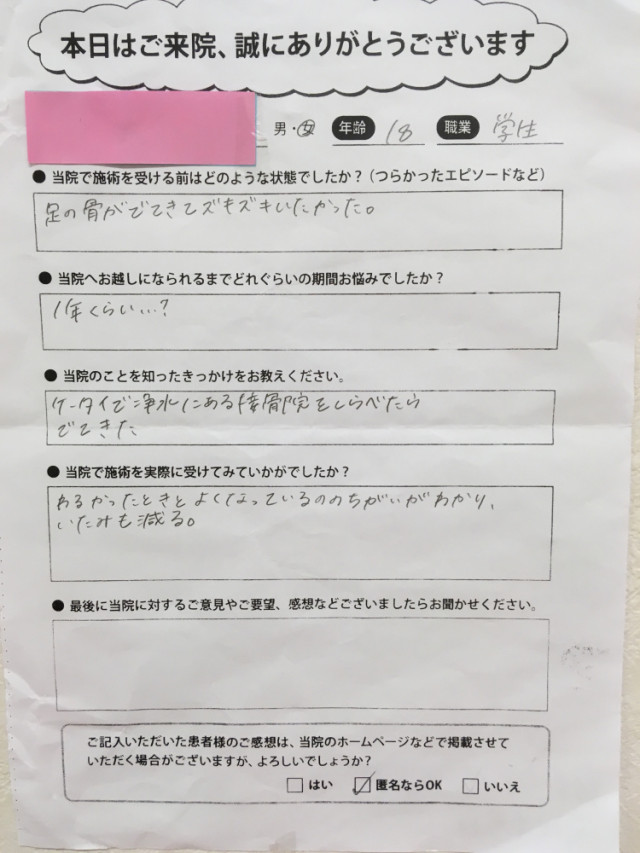 本日はご来院、誠にありがとうございます
男・女 年齢 18 職業 学生
● 当院で施術を受ける前はどのような状態でしたか？（つらかったエピソードなど）
足の骨がでてきてズキズキいたかった。
● 当院へお越しになられるまでどれぐらいの期間お悩みでしたか？
1年くらい…？
● 当院のことを知ったきっかけをお教えください。
ケータイで浄水にある接骨院をしらべたら
でてきた
● 当院で施術を実際に受けてみていかがでしたか？
わるかったときとよくなっているののちがいがわかり、
いたみも減る。
● 最後に当院に対するご意見やご要望、感想などございましたらお聞かせください。
ご記入いただいた患者様のご感想は、当院のホームページなどで掲載させて
いただく場合がございますが、よろしいでしょうか？
□ はい ☑ 匿名ならOK □ いいえ